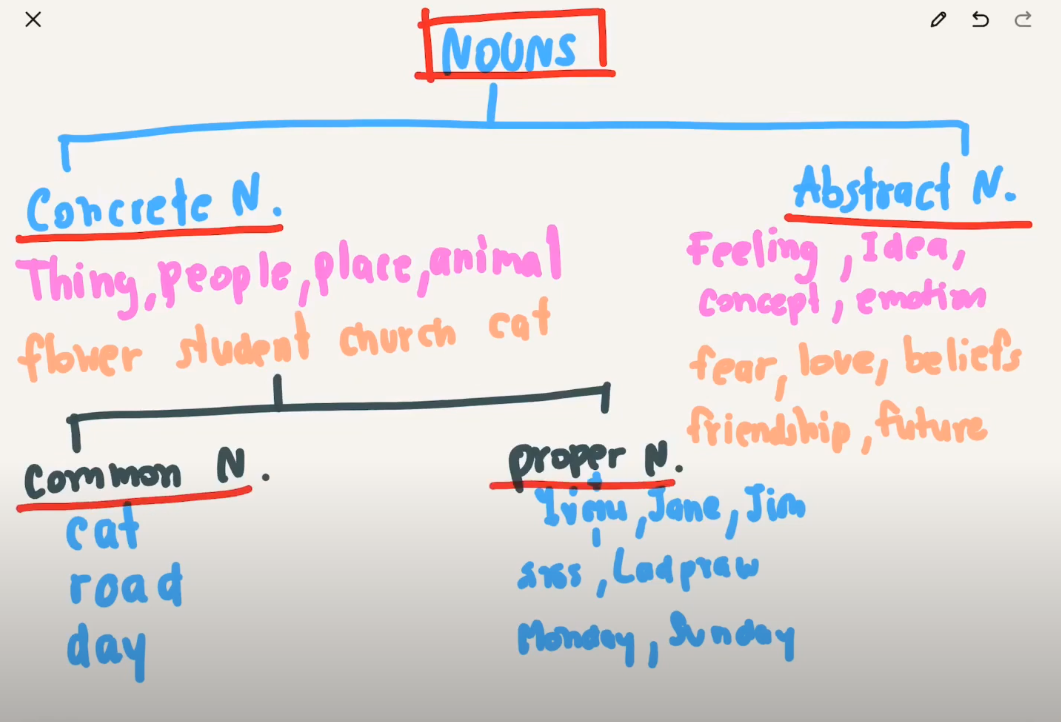 NOUNS
Concrete N.
Thing, people, place, animal
flower student church cat
Common N.
cat
road
day
proper N.
, Jane, Jim
, Ladpraw
Monday, Sunday
Abstract N.
Feeling, Idea,
concept, emotion
fear, love, beliefs
friendship, future